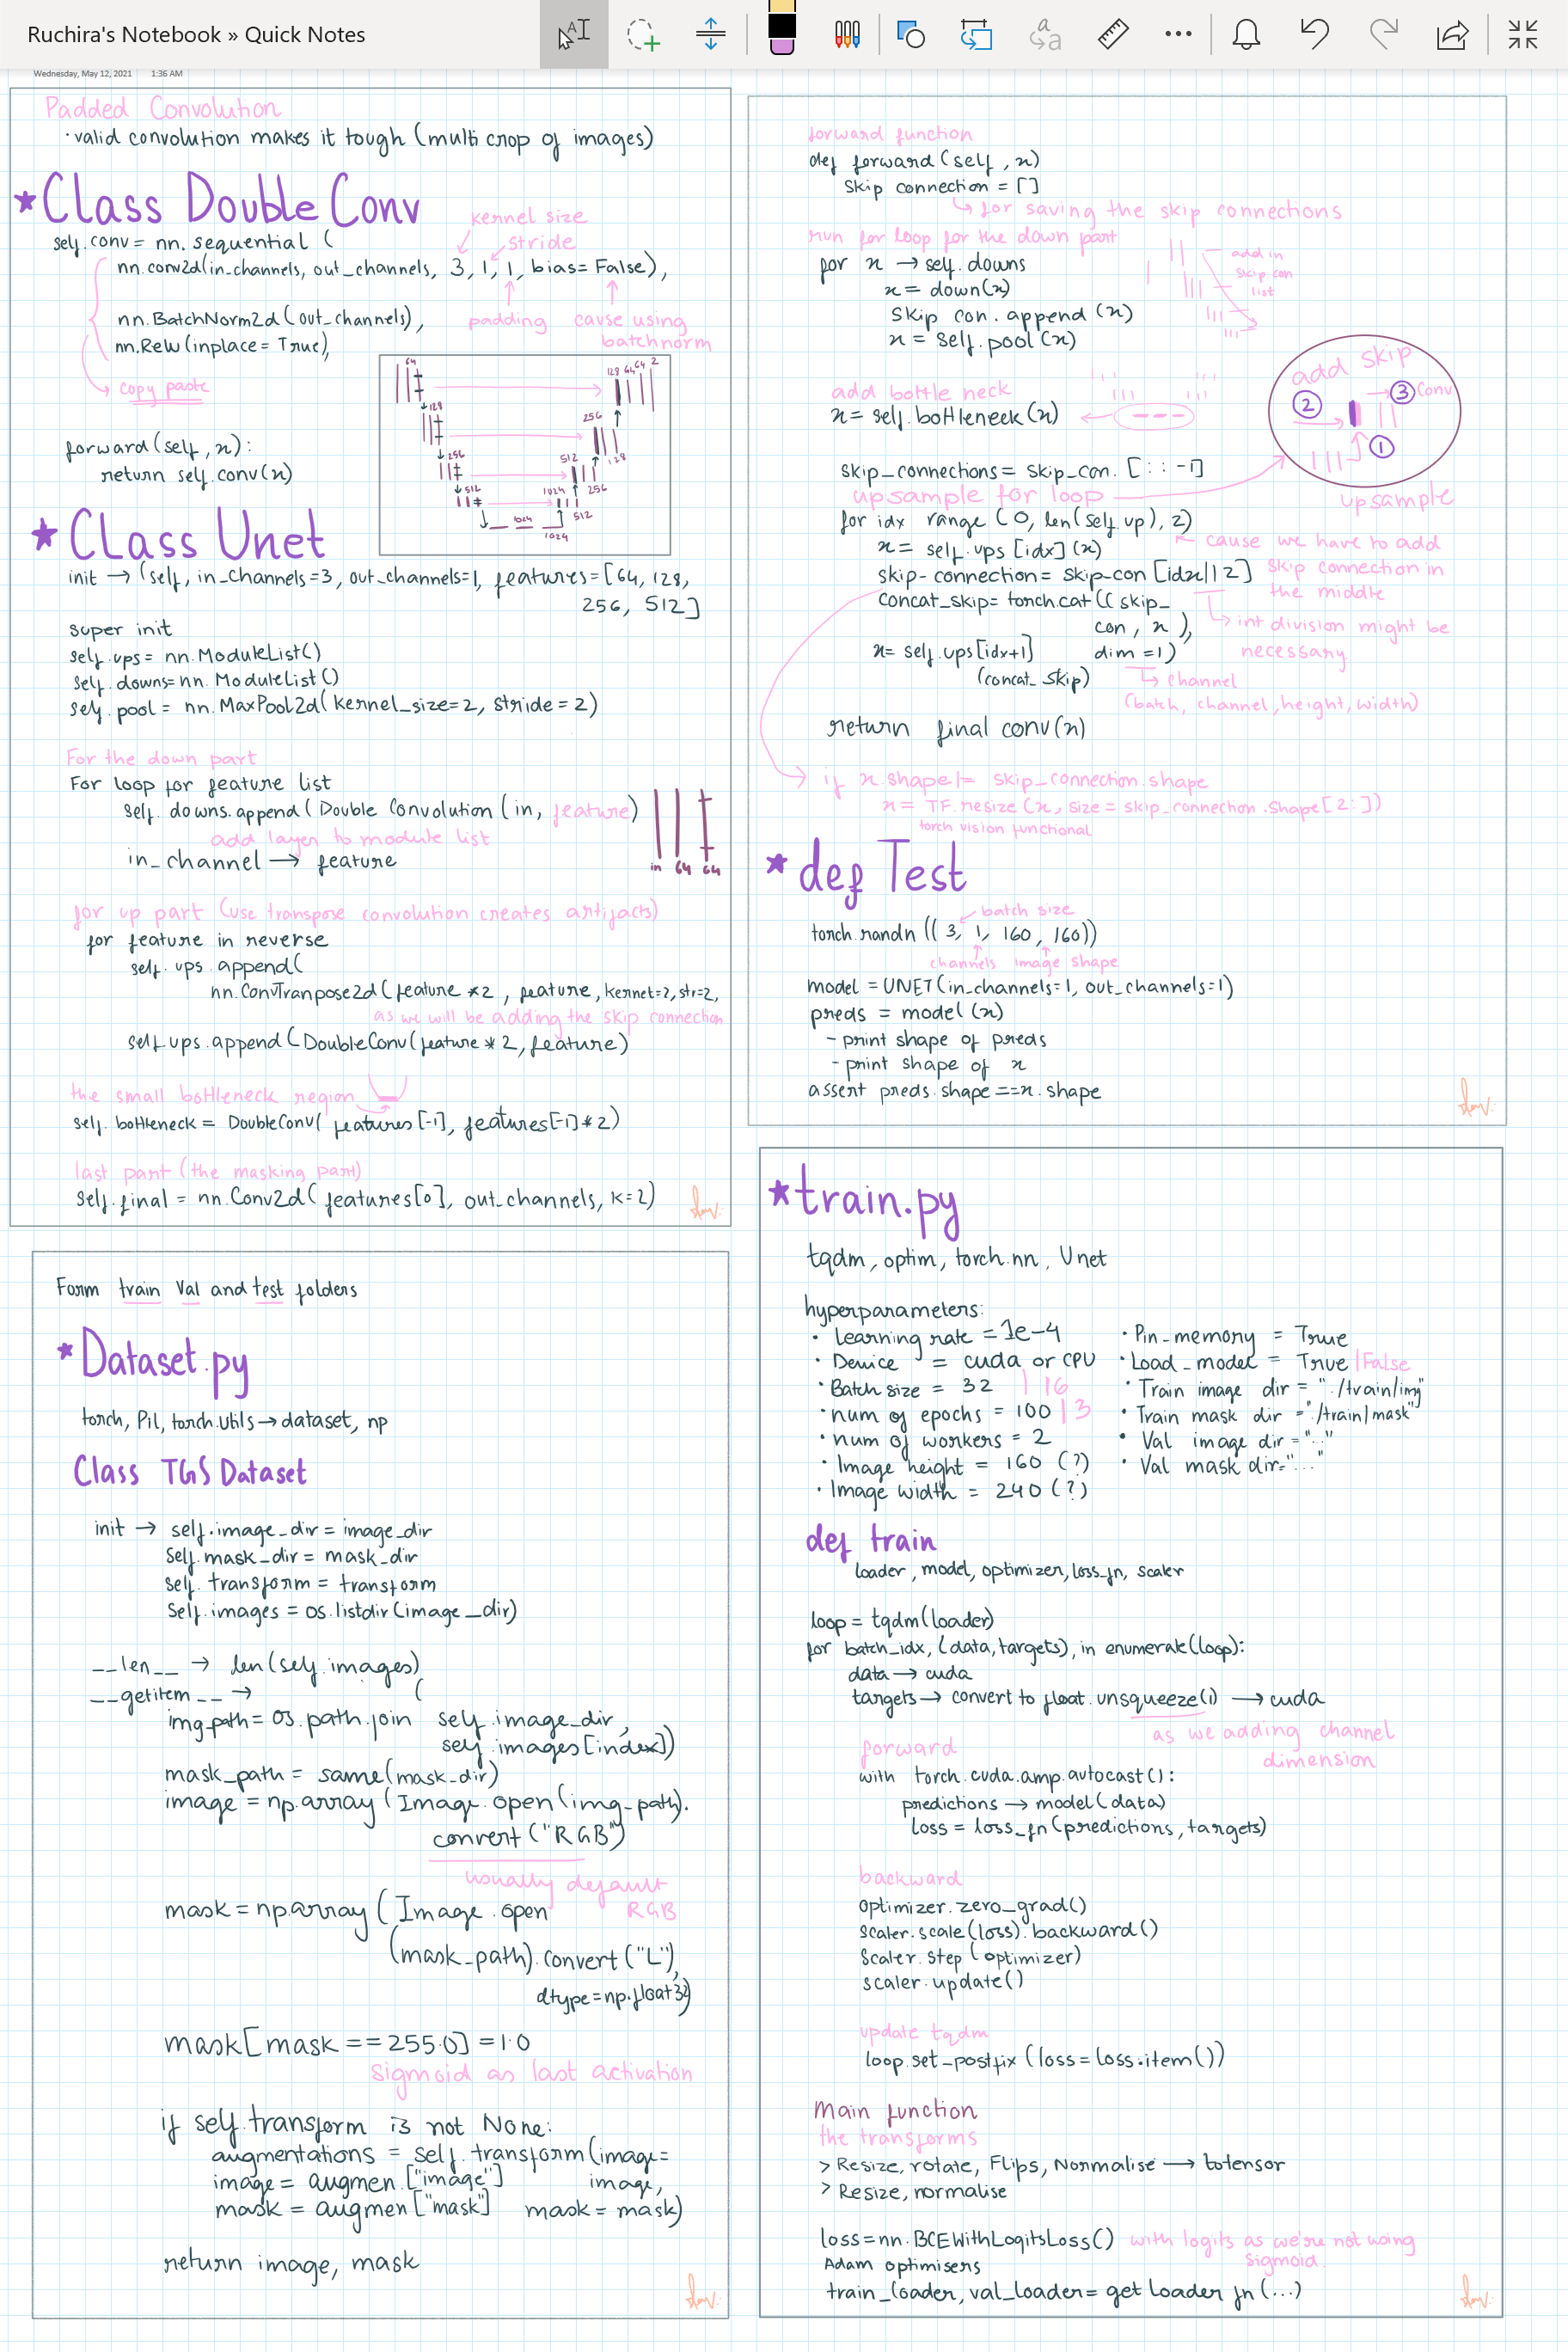 Ruchira's Notebook » Quick Notes
Wednesday, May 12, 2021 1:36 AM
Padded Convolution
· valid convolution makes it tough (multi crop of images)
* Class Double Conv
kernel size
stride
self.conv = nn.sequential (
nn.conv2d(in_channels, out_channels, 3, 1, 1, bias=False),
padding
cause using
batchnorm
nn.BatchNorm2d(out_channels),
nn.ReLU(inplace=True),
copy paste
forward(self, x):
return self.conv(x)
64 128 64 64 2
128 256
256 512 128
512 1024 256
1024 512
1024
* Class Unet
init → (self, in_channels=3, out_channels=1, features=[64, 128,
256, 512]
super init
self.ups= nn.ModuleList()
self.downs=nn.ModuleList()
self.pool = nn.MaxPool2d(kernel_size=2, stride=2)
For the down part
For loop for feature list
self.downs.append(Double Convolution (in, feature)
add layer to module list
in_channel → feature
in 64 64
for up part (use transpose convolution creates artifacts)
for feature in reverse
self.ups.append(
nn.ConvTranpose2d(feature *2, feature, kernel=2, str=2,
as we will be adding the skip connection
self.ups.append(DoubleConv(feature*2, feature)
the small bottleneck region
self.bottleneck = DoubleConv(features[-1], features[-1]*2)
last part (the masking part)
self.final = nn.Conv2d(features[0], out_channels, k=2)
forward function
def forward(self, x)
Skip connection = []
for saving the skip connections
run for loop for the down part
for x → self.downs
x = down(x)
Skip con.append(x)
x = self.pool(x)
add in
skip con
list
add bottle neck
x = self.bottleneck(x)
add skip
② → ③ Conv
①
upsample
skip_connections = skip_con.[::-1]
upsample for loop
for idx range (0, len(self.up), 2)
x = self.ups[idx](x)
cause we have to add
skip connection in
the middle
skip-connection = skip-con [idx//2]
int division might be
necessary
concat_skip= torch.cat((skip_
con, x),
dim=1)
x= self.ups[idx+1]
(concat_skip)
channel
(batch, channel, height, width)
return final conv(x)
if x.shape!= skip_connection.shape
x = TF.resize(x, size = skip_connection.shape[2:])
torch vision functional
* def Test
batch size
torch.randn((3, 1, 160, 160))
channels image shape
model = UNET(in_channels=1, out_channels=1)
preds = model(x)
- print shape of preds
- print shape of x
assert preds.shape==x.shape
Form train Val and test folders
* Dataset.py
torch, Pil, torch.utils → dataset, np
Class TGS Dataset
init → self.image_dir = image_dir
Self.mask_dir = mask_dir
self.transform = transform
Self.images = os.listdir(image_dir)
__len__ → len(self.images)
__getitem__ →
img_path = os.path.join ( self.image_dir,
self.images[index])
mask_path = same(mask_dir)
image = np.array(Image.open(img-path).
convert("RGB")
usually default
RGB
mask = np.array(Image.open
(mask_path).convert("L"),
dtype=np.float32)
mask[mask == 255.0] = 1.0
Sigmoid as last activation
if self.transform is not None:
augmentations = self.transform(image=
image,
mask = mask)
image = augmen.["image"]
mask = augmen["mask"]
return image, mask
* train.py
tqdm, optim, torch.nn, Unet
hyperparameters:
· Learning rate = 1e-4
· Device = cuda or CPU
· Batch size = 32 | 16
· num of epochs = 100 | 3
· num of workers = 2
· Image height = 160 (?)
· Image width = 240 (?)
· Pin_memory = True
· Load_model = True | False
· Train image dir = "./train/img"
· Train mask dir = "./train/mask"
· Val image dir = "..."
· Val mask dir= "..."
def train
loader, model, optimizer, loss_fn, scaler
loop = tqdm(loader)
for batch_idx, (data, targets), in enumerate(loop):
data → cuda
targets → convert to float.unsqueeze(1) → cuda
as we adding channel
dimension
forward
with torch.cuda.amp.autocast():
predictions → model(data)
loss = loss_fn(predictions, targets)
backward
optimizer.zero_grad()
scaler.scale(loss).backward()
Scaler.step(optimizer)
scaler.update()
update tqdm
loop.set_postfix (loss=loss.item())
Main function
the transforms
> Resize, rotate, Flips, Normalise → totensor
> Resize, normalise
loss=nn.BCEWithLogitsLoss() with logits as we're not using
sigmoid.
Adam optimisers
train_loader, val_loader = get loader fn (...)